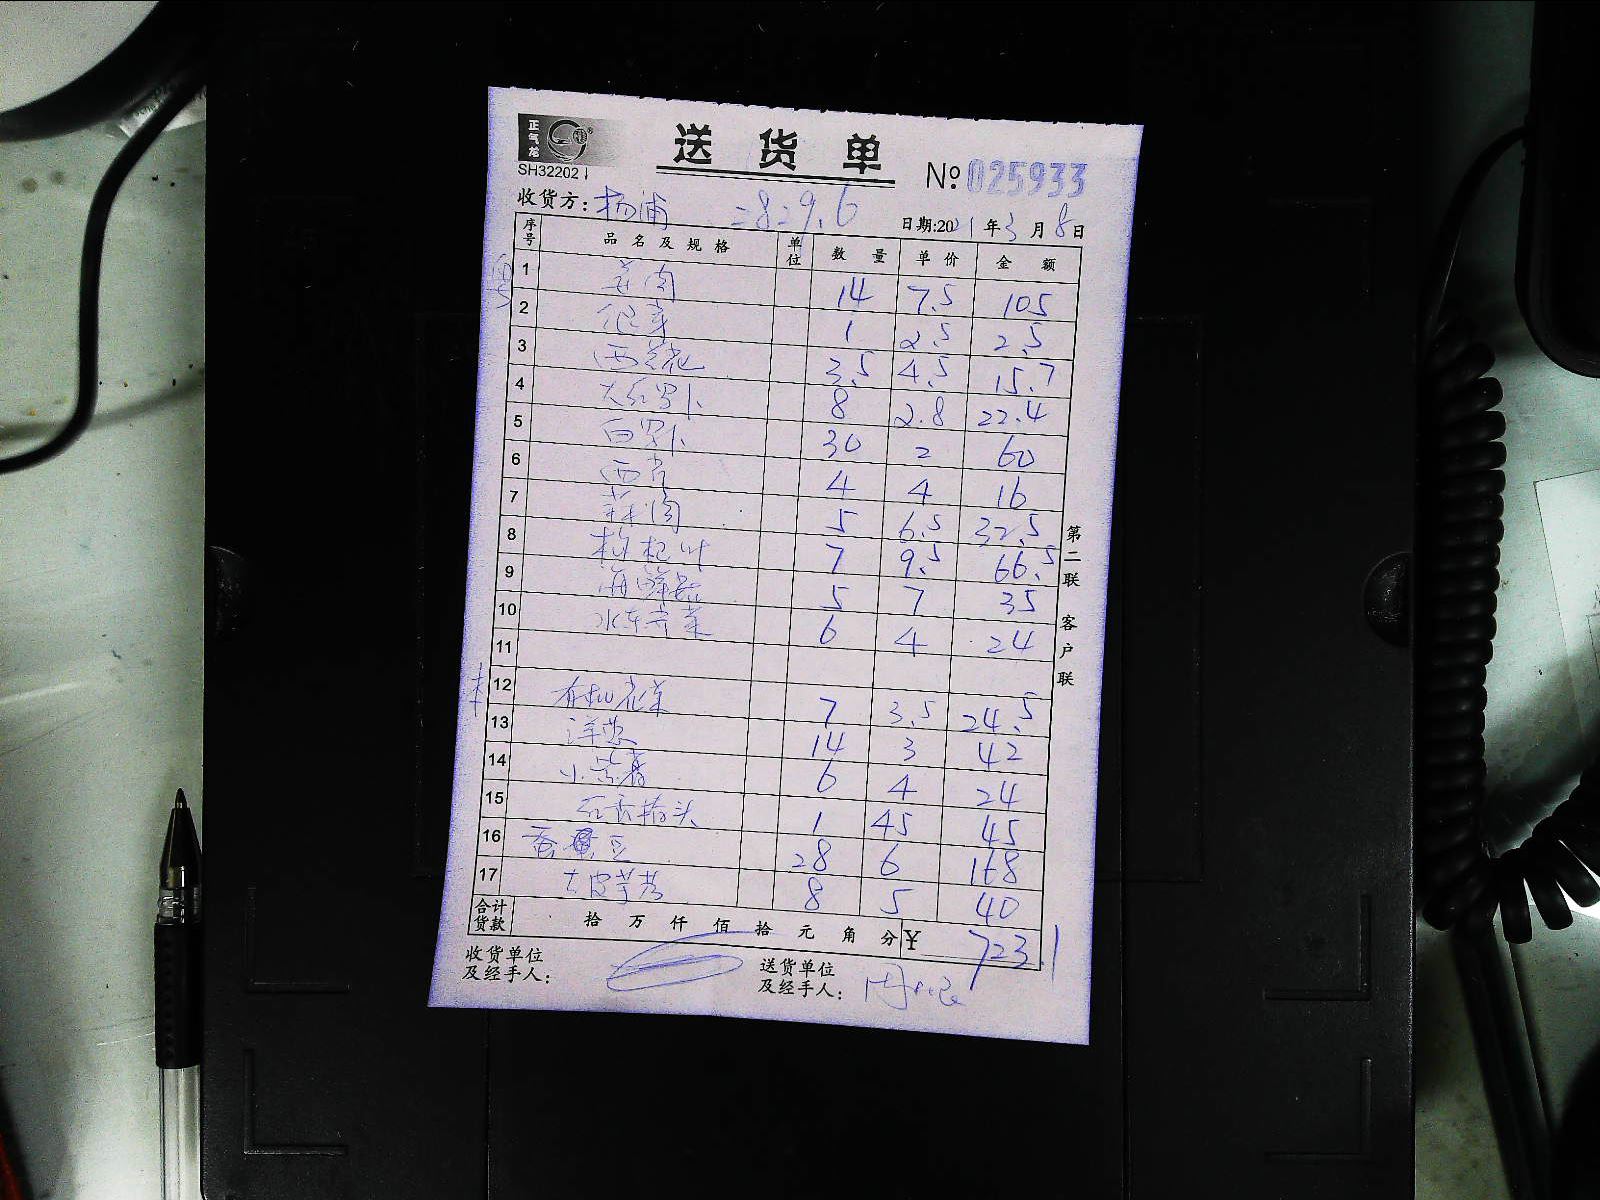 正气龙
送 货 单
SH32202
№ 025933
收货方: 杨浦 =8=9.6 日期:2021年3月8日
序号 品名及规格 单位 数量 单价 金额
1 14 7.5 105
2 银芽 1 2.5 2.5
3 西兰花 3.5 4.5 15.7
4 大红罗卜 8 2.8 22.4
5 白罗卜 30 2 60
6 西芹 4 4 16
7 5 6.5 32.5
8 枸杞叶 7 9.5 66.5
9 海鲜菇 5 7 35
10 水东芥菜 6 4 24
11
12 有机花菜 7 3.5 24.5
13 洋葱 14 3 42
14 小紫薯 6 4 24
15 1 45 45
16 蚕豆 28 6 168
17 大皮芋艿 8 5 40
合计货款 拾 万 仟 佰 拾 元 角 分 ¥ 723.1
收货单位及经手人:
送货单位及经手人:
第二联 客户联